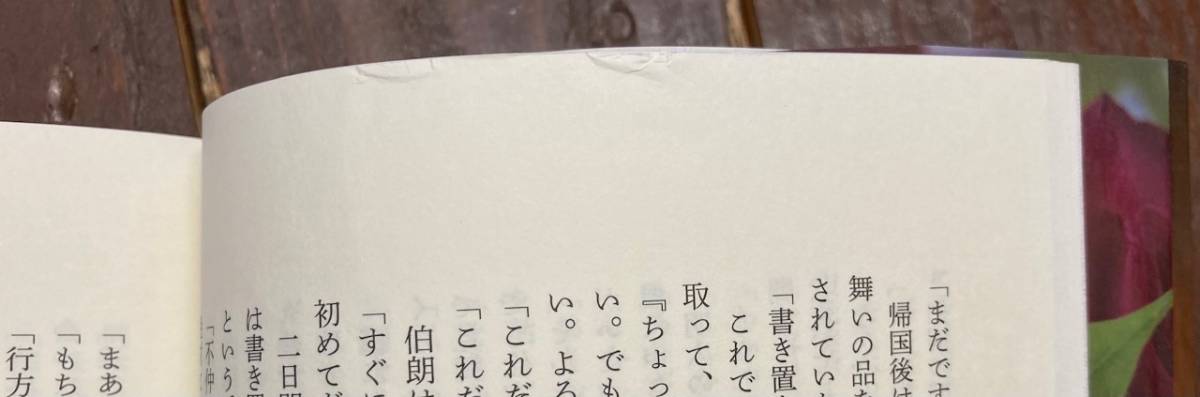 「まだです
帰国後は
舞いの品を
されていか
「書き置き
これで
取って、
『ちょっ
い。でも
い。よろ
「これだ
「これだ
伯朗は
「すぐに
初めてだ
二日間
は書き置
という
「不仲
「まあ
「もち
「行方